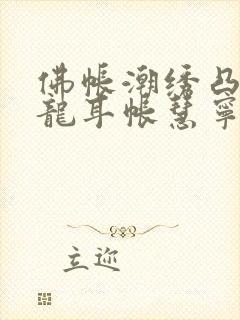 佛帳潮绣凸
龍耳帐慧寧
立迩